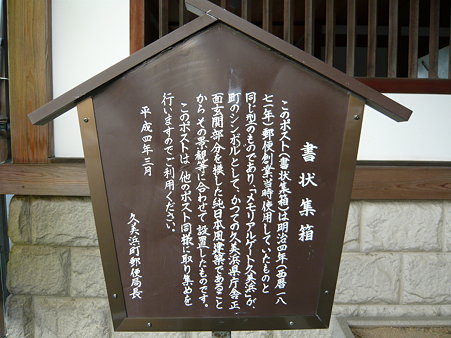 書状集箱
このポスト(書状集箱)は明治四年(西暦一八
七一年)郵便創業当時使用していたものと
同じ型のものであり、「メモリアルゲート久美浜」が
町のシンボルとして、かつての久美浜県庁舎正
面玄関部分を模した純日本風建築であること
から、その景観等に合わせて設置したものです。
このポストは、他のポスト同様に取り集めを
行いますのでご利用ください。
平成四年三月
久美浜町郵便局長